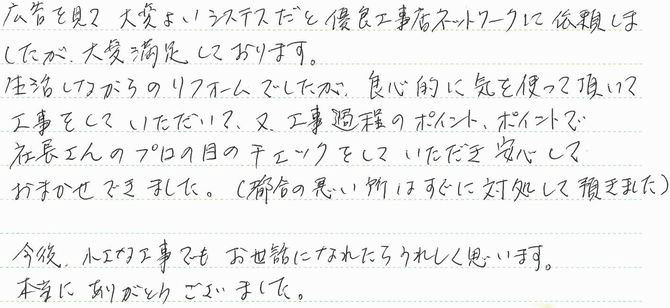 広告を見て大変よいシステムだと優良工事店ネットワークに依頼しま
したが、大変満足しております。
生活しながらのリフォームでしたが、良心的に気を使って頂いて
工事をしていただいて、又、工事過程のポイント、ポイントで
社長さんのプロの目のチェックをしていただき安心して
おまかせできました。(都合の悪い所はすぐに対処して頂きました)
今後、小さな工事でもお世話になれたらうれしく思います。
本当にありがとうございました。